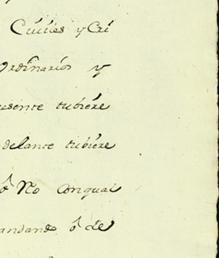 Civiles y Cri
Ordinarios y
resente tubiere
delante tubiere
ô No Conqual
andando ô de